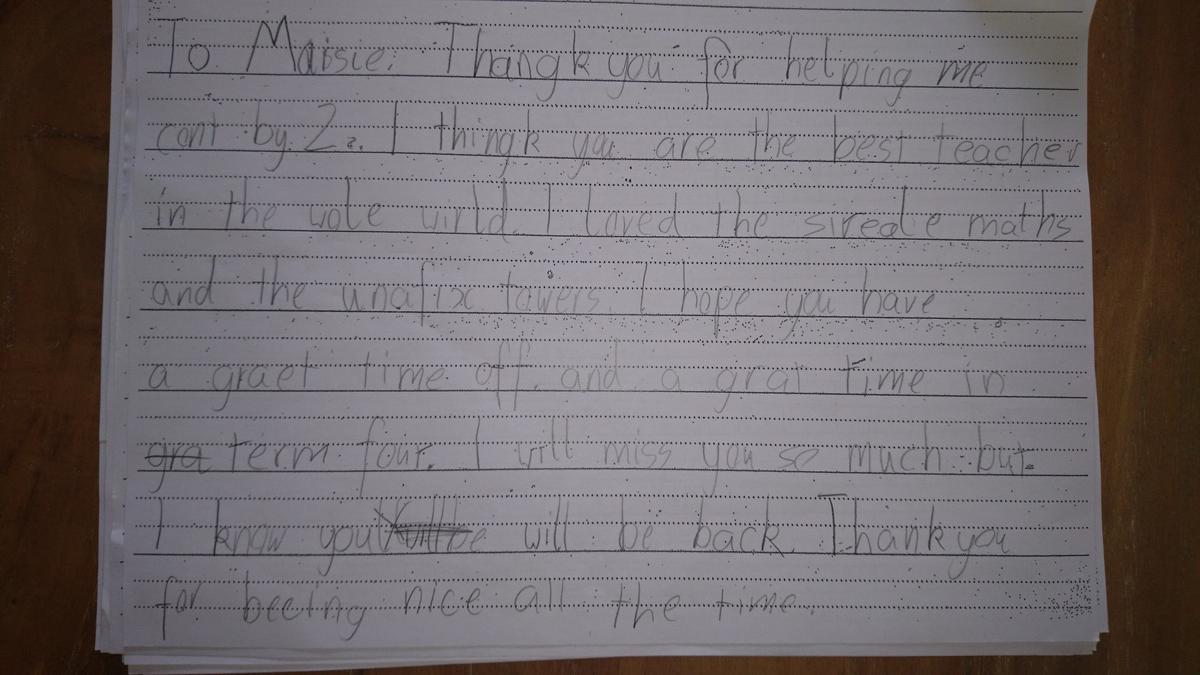 To Maisie. Thangk you for helping me
cont by 2s. I thingk you are the best teacher
in the wole wirld. I loved the sireale maths
and the unafix towers. I hope you have
a graet time off. and a grat time in
gra term four. I will miss you so much but
I know you will be back. Thank you
for beeing nice all the time.